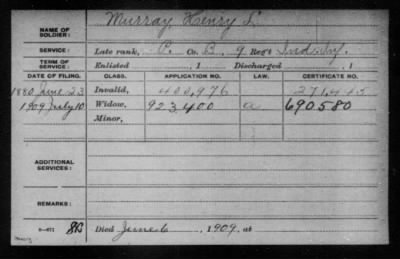 NAME OF SOLDIER: Murray Henry L.
SERVICE: Late rank, P. Co. B, 9 Reg't Ind. Inf.
TERM OF SERVICE: Enlisted , 1 Discharged , 1
DATE OF FILING. CLASS. APPLICATION NO. LAW. CERTIFICATE NO.
1880 June 23 Invalid, 400,976 271,445
1909 July 10 Widow, 923,400 a 690580
Minor,
ADDITIONAL SERVICES:
REMARKS:
Died June 6 , 1909, at